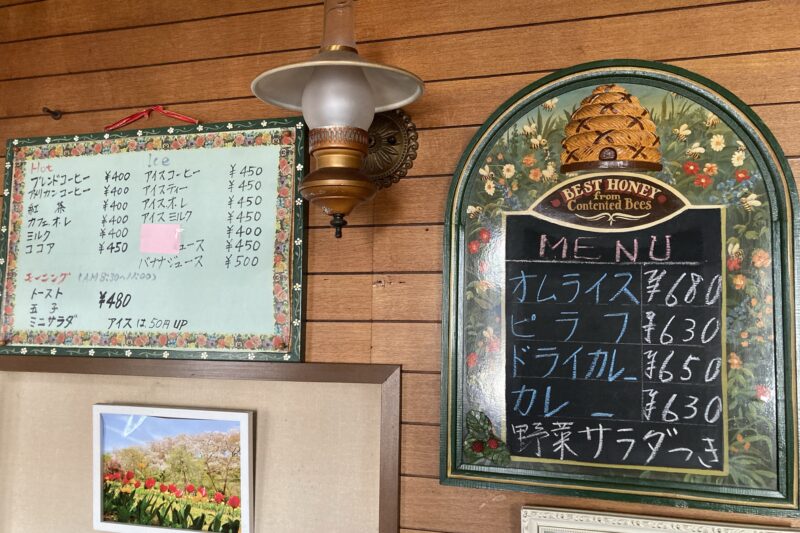 Hot
ブレンドコーヒー ¥400
アメリカンコーヒー ¥400
紅茶 ¥400
カフェオレ ¥400
ミルク ¥400
ココア ¥450
Ice
アイスコーヒー ¥450
アイスティー ¥450
アイスオレ ¥450
アイスミルク ¥450
¥400
ュース ¥450
バナナジュース ¥500
モーニング
トースト
玉子
ミニサラダ
¥480
アイスは50円UP
BEST HONEY
from
Contented Bees
MENU
オムライス ¥680
ピラフ ¥630
ドライカレー ¥650
カレー ¥630
野菜サラダつき